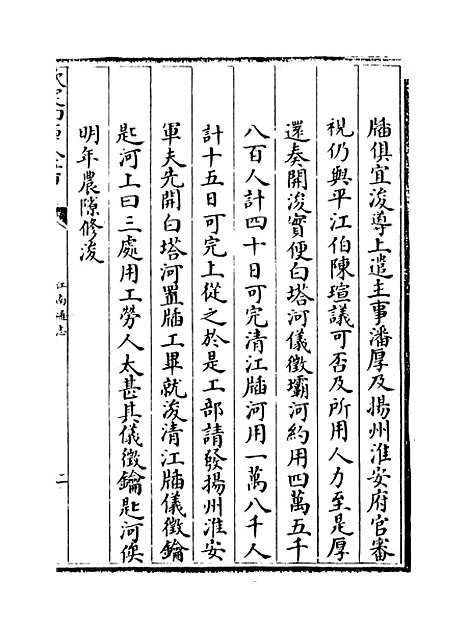 牐俱宜浚導上遣主事潘厚及揚州淮安府官審
視仍與平江伯陳瑄議可否及所用人力至是厚
還奏開浚實便白塔河儀徵壩河約用四萬五千
八百人計四十日可完清江牐河用一萬八千人
計十五日可完上從之於是工部請發揚州淮安
軍夫先開白塔河置牐工畢就浚清江牐儀徵鑰
匙河上曰三處用工勞人太甚其儀徵鑰匙河俟
明年農隙修浚
欽定四庫全書
江南通志
二